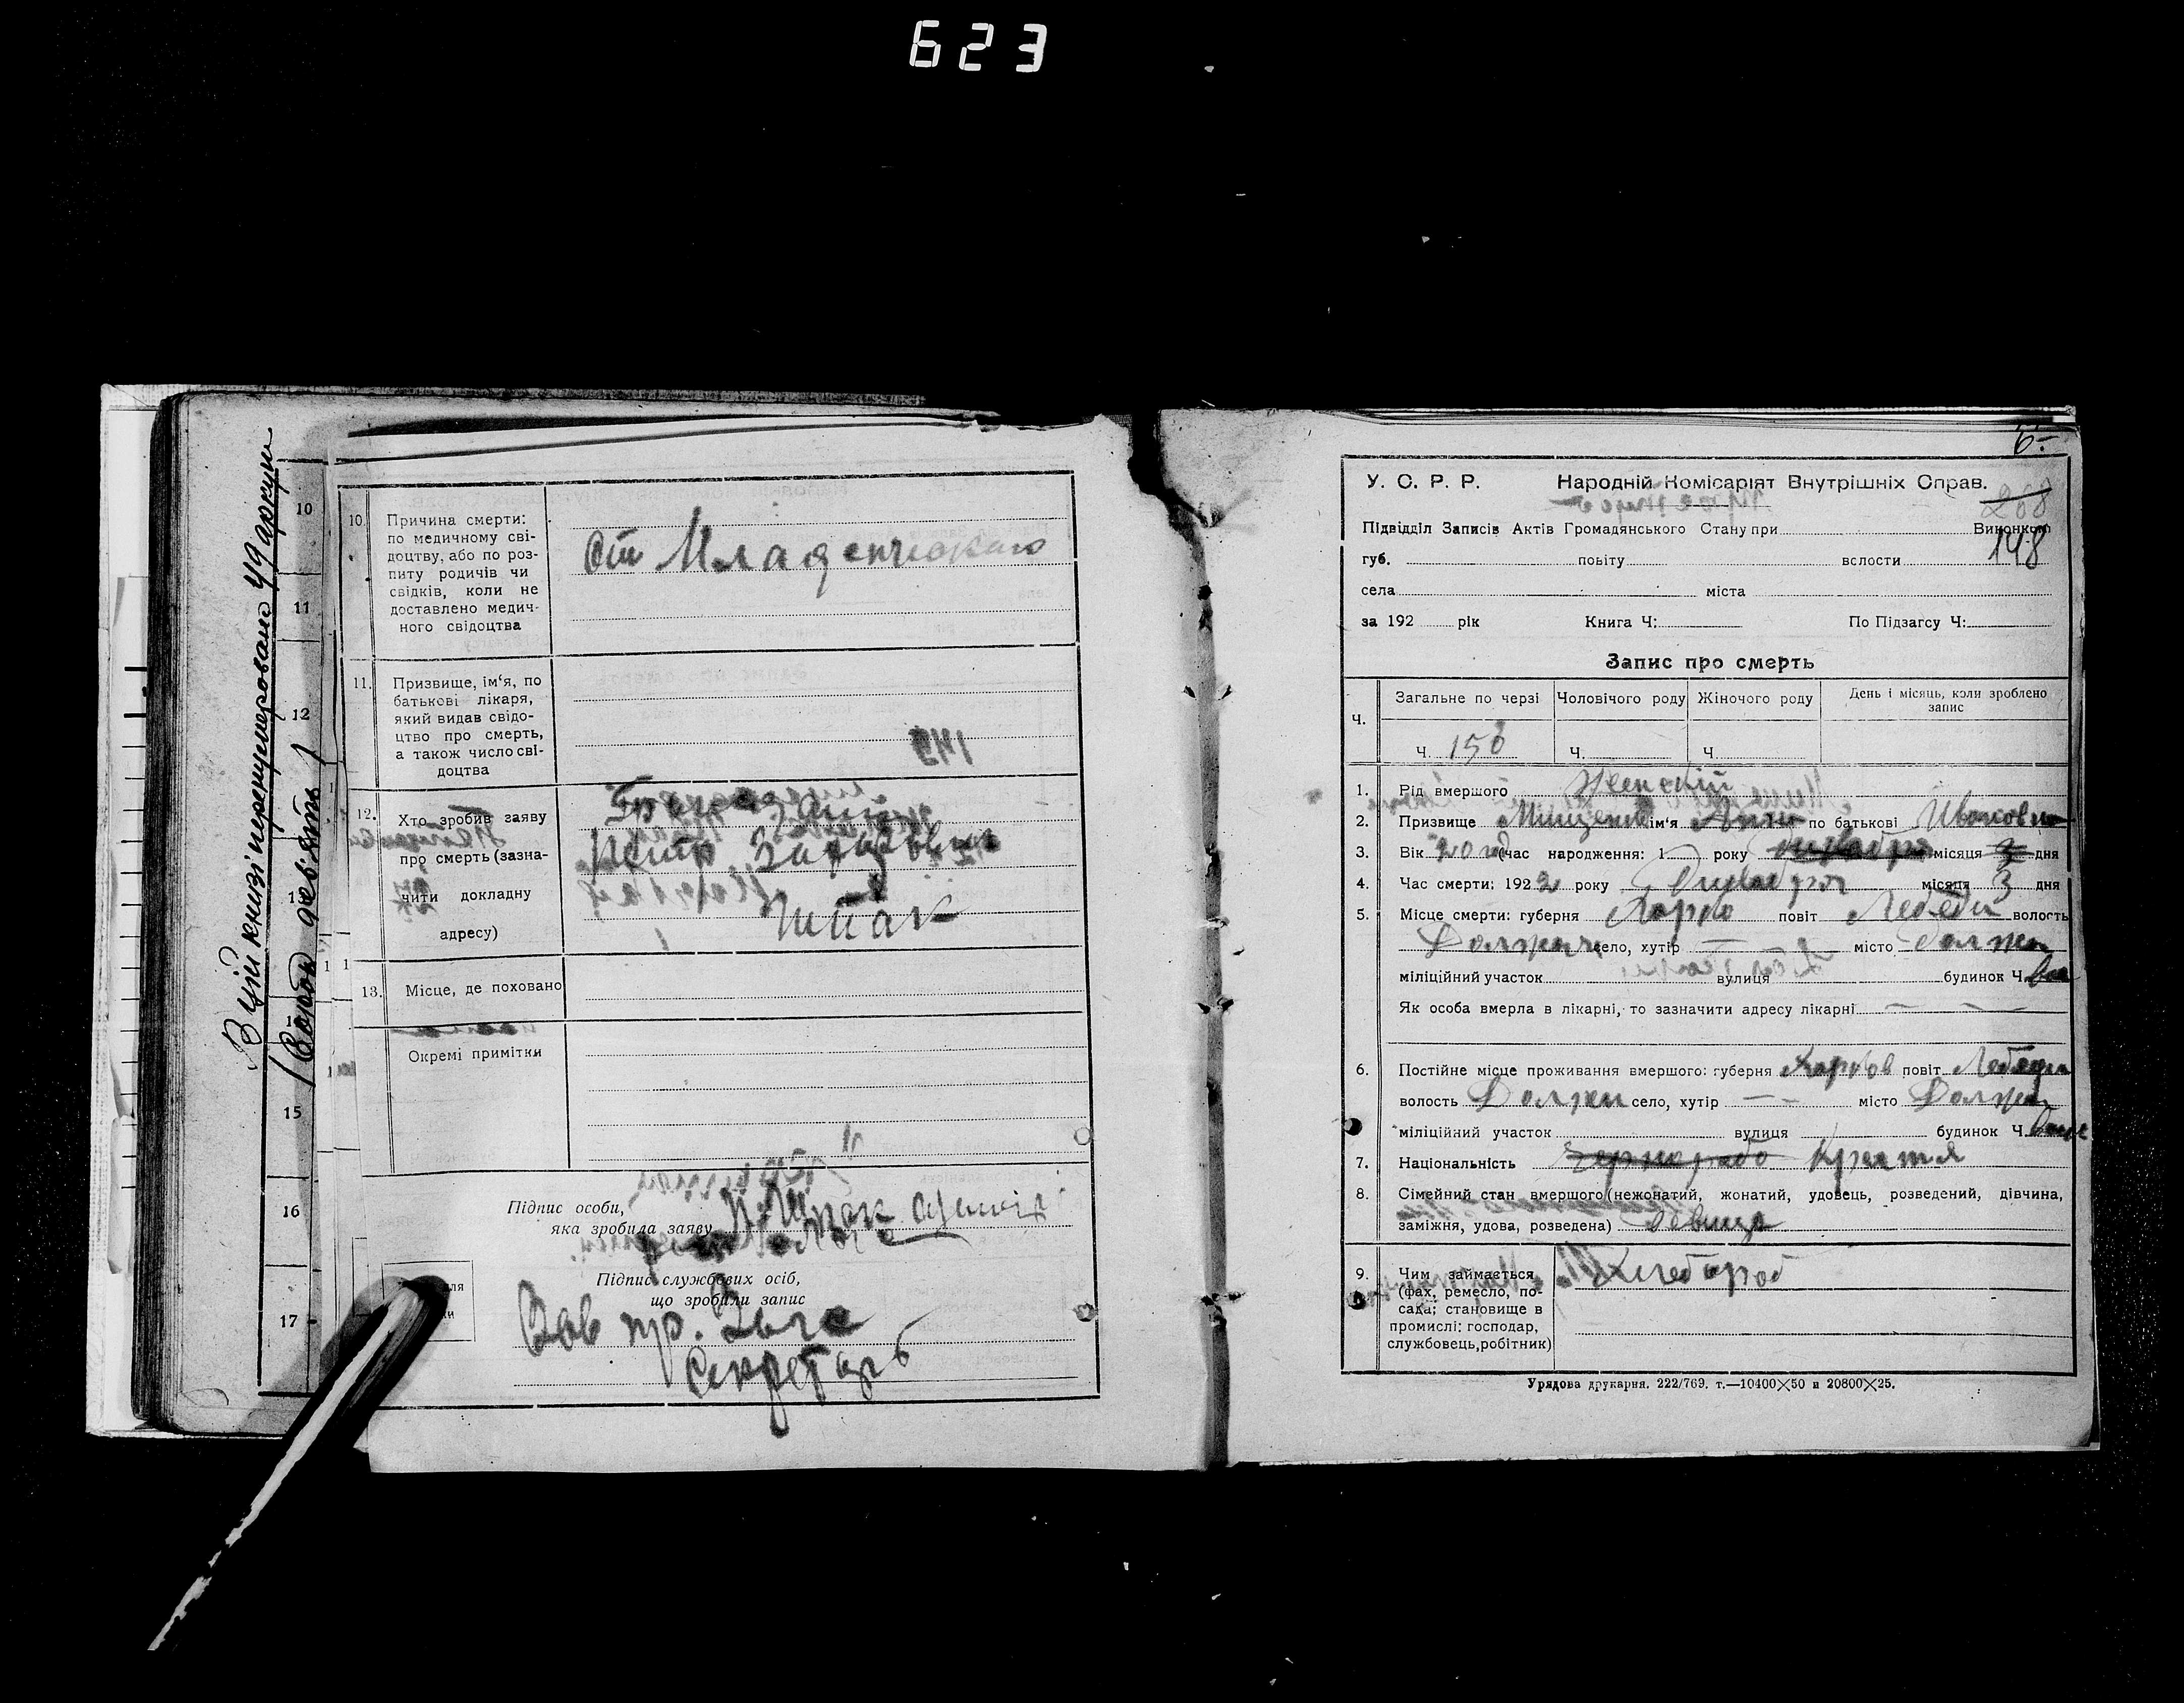 623
В цій книзі перенумеровано 49 аркуш
(Сорок дев'ять)
10
11
12
15
16
17
10. Причина смерти:
по медичному сві-
доцтву, або по роз-
питу родичів чи
свідків, коли не
доставлено медич-
ного свідоцтва
От Младенческаго
11. Призвище, ім'я, по
батькові лікаря,
який видав свідо-
цтво про смерть,
а також число сві-
доцтва
12. Хто зробив заяву
про смерть (зазна-
чити докладну
адресу)
Петр Захарович
Шпак
13. Місце, де поховано
Окремі примітки
Підпис особи,
яка зробила заяву П. Шпак
Підпис службових осіб,
що зробили запис
Зав пр.
Секретарь
6.
У. С. Р. Р. Народній Комісаріят Внутрішніх Справ.
268
Підвідділ Записів Актів Громадянського Стану при Виконком
148
губ. повіту вслости
села міста
за 192 рік Книга Ч: По Підзагсу Ч:
Запис про смерть
Ч. Загальне по черзі Чоловічого роду Жіночого роду День і місяць, коли зроблено
запис
Ч. 150 Ч. Ч.
1. Рід вмершого Женский
2. Призвище Мищенко ім'я Анна по батькові Ивановна
3. Вік 20 год (час народження: 1 року декабря місяця 3 дня
4. Час смерти: 1922 року Декабря місяця 3 дня
5. Місце смерти: губерня Харько повіт Лебеди волость
Должич село, хутір — місто Должи
міліційний участок вулиця будинок Ч.
Як особа вмерла в лікарні, то зазначити адресу лікарні — —
6. Постійне місце проживання вмершого: губерня Харьков повіт Лебедин
волость Должи село, хутір — - місто Должи
міліційний участок вулиця будинок Ч.
7. Національність чернорабо Крестя
8. Сімейний стан вмершого (нежонатий, жонатий, удовець, розведений, дівчина,
заміжня, удова, розведена) девица
9. Чим займається
(фах, ремесло, по-
сада; становище в
промислі: господар,
службовець, робітник)
Хлебороб
Урядова друкарня. 222/769. т.—10400×50 и 20800×25.